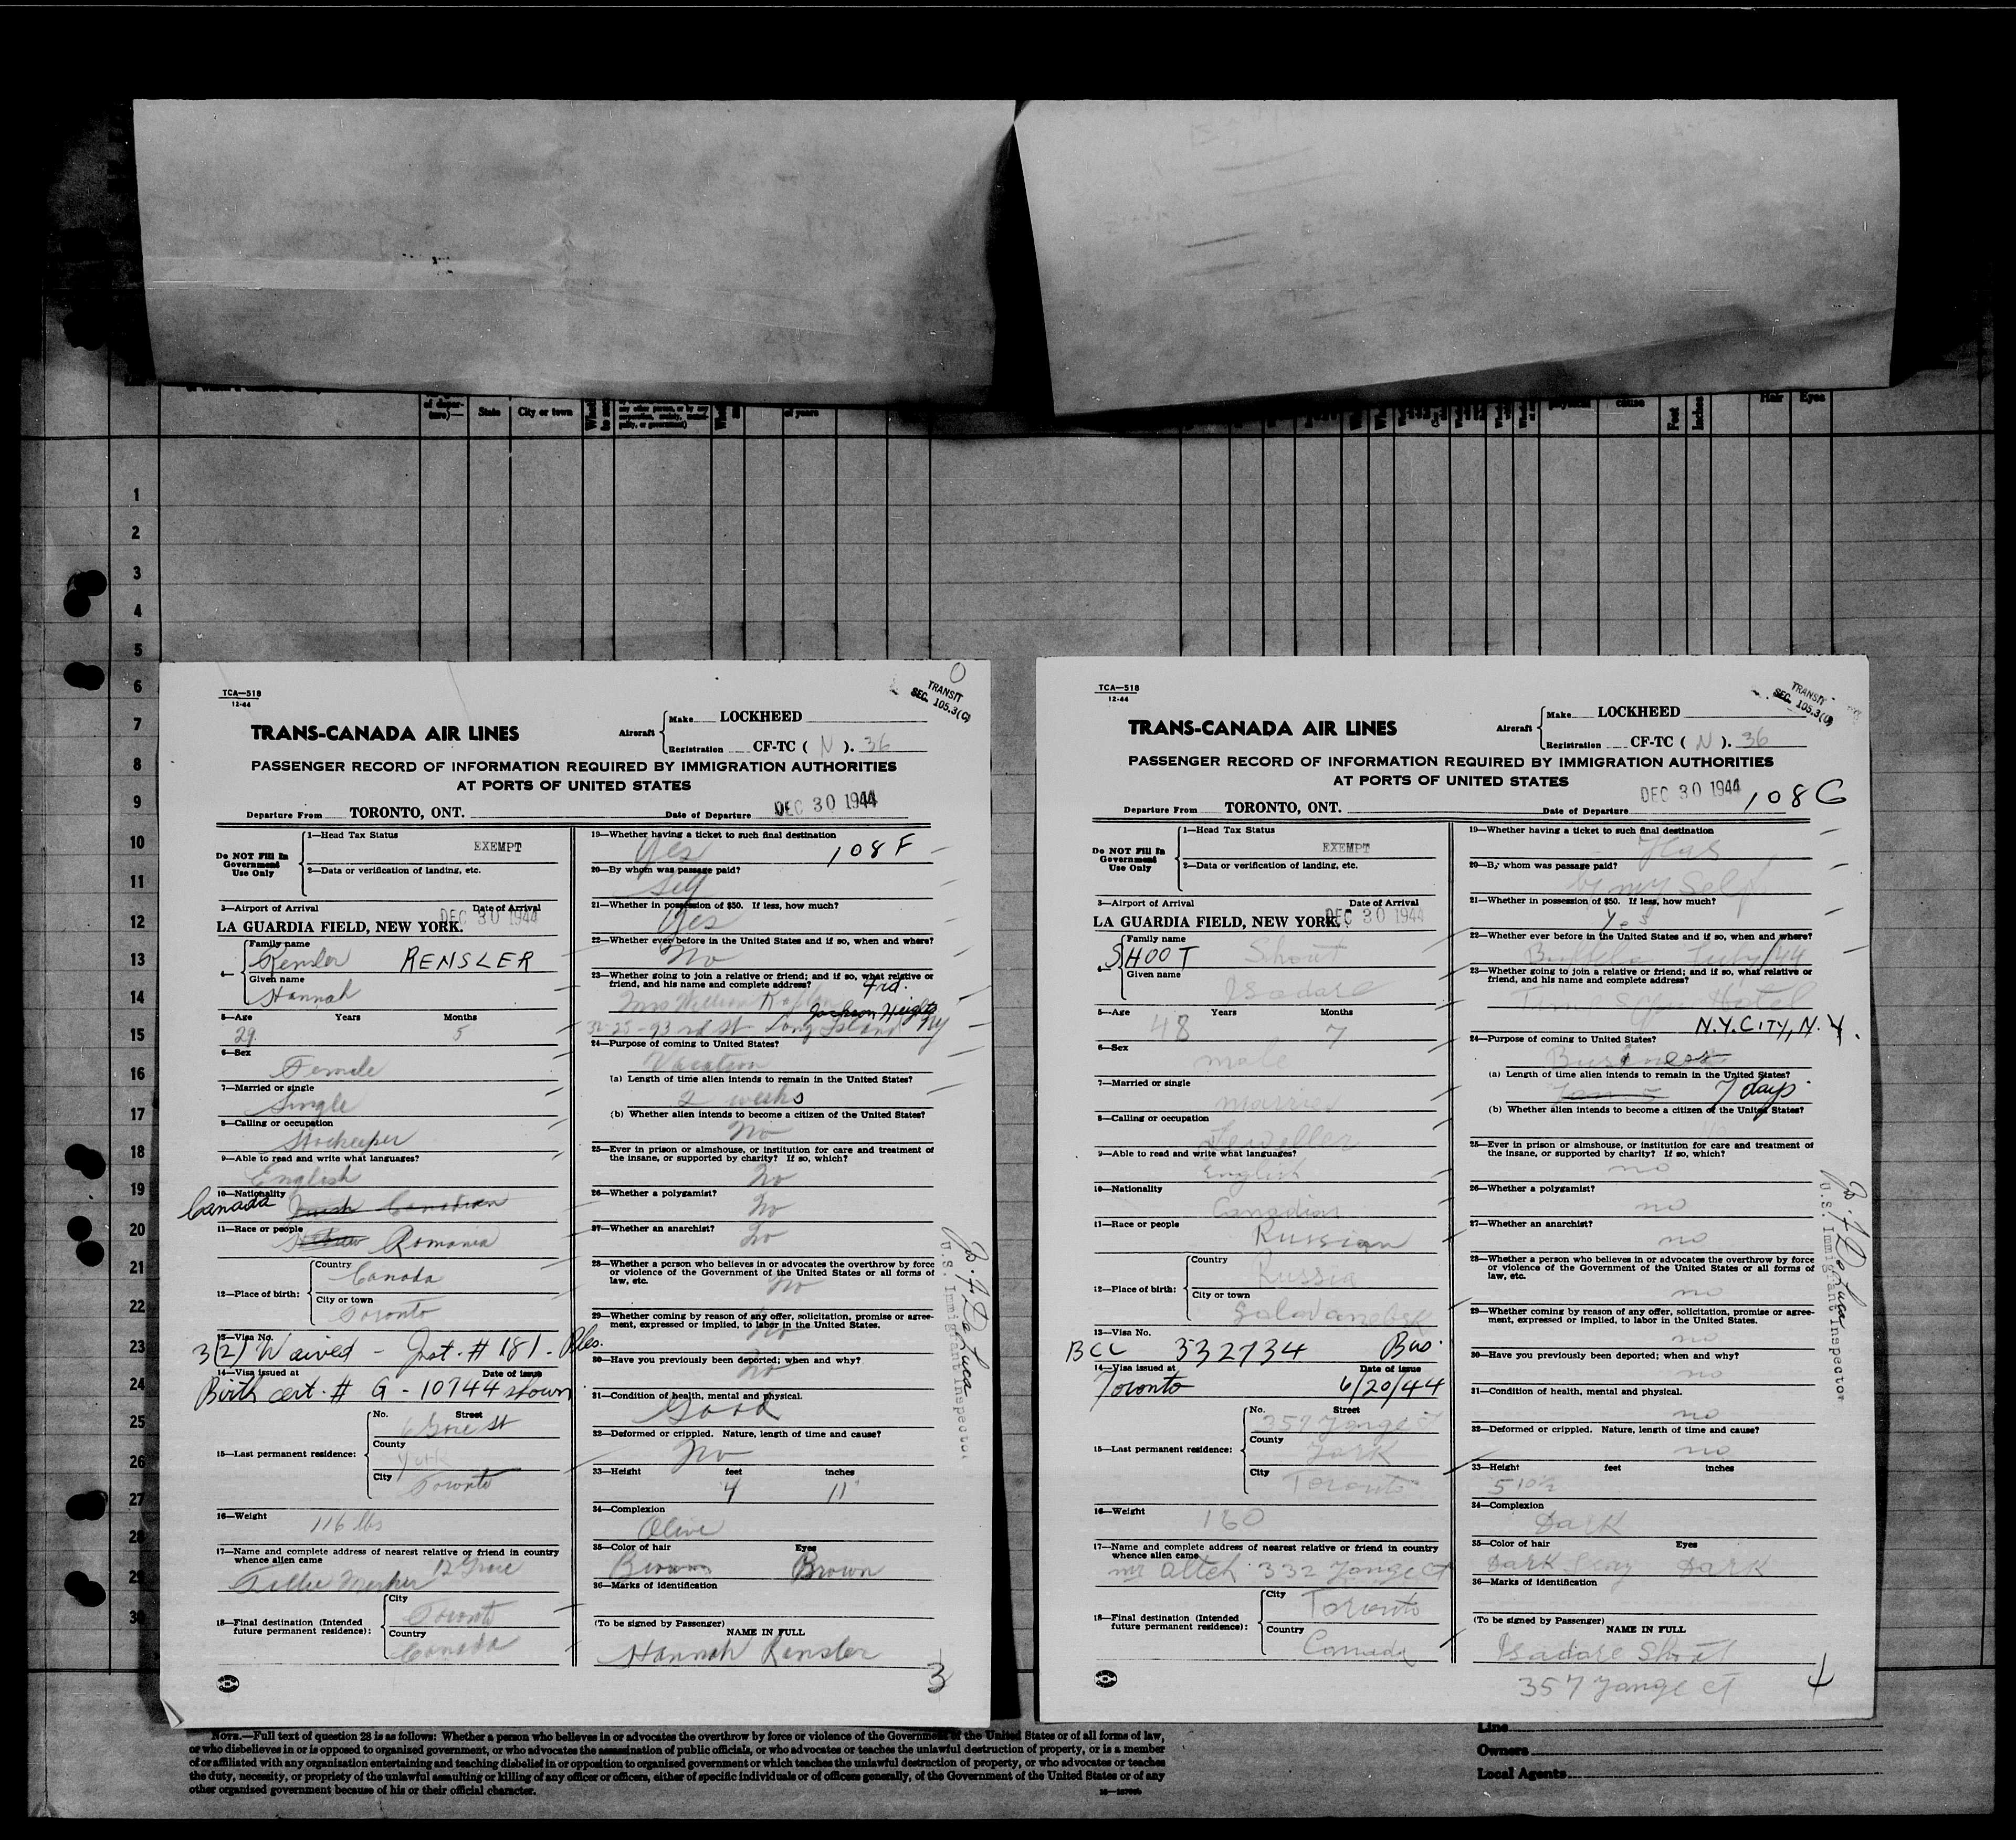 of depar-
ture)—
State
City or town
any other person, or by any
corporation, society, munici-
pality, or government)
of years
physical
cause
Feet
Inches
Hair
Eyes
1
2
3
4
5
6
7
8
9
10
11
12
13
14
15
16
17
18
19
20
21
22
23
24
25
26
27
28
29
30
TCA—518
12-44
TRANSIT
SEC. 105.3(C)
TRANS-CANADA AIR LINES
Aircraft
Make LOCKHEED
Registration CF-TC ( N ). 36
PASSENGER RECORD OF INFORMATION REQUIRED BY IMMIGRATION AUTHORITIES
AT PORTS OF UNITED STATES
Departure From TORONTO, ONT. Date of Departure DEC 30 1944
Do NOT Fill In
Government
Use Only
1—Head Tax Status
EXEMPT
2—Data or verification of landing, etc.
3—Airport of Arrival Date of Arrival
LA GUARDIA FIELD, NEW YORK. DEC 30 1944
4—
Family name
Rensler RENSLER
Given name
Hannah
5—Age Years Months
29 5
6—Sex
Female
7—Married or single
Single
8—Calling or occupation
Storkeeper
9—Able to read and write what languages?
English
10—Nationality
Canada Jewish Canadian
11—Race or people
Hebrew Romania
12—Place of birth:
Country
Canada
City or town
Toronto
13—Visa No.
3(2) Waived - Inst. # 181. Ples.
14—Visa issued at Date of issue
Birth cert. # G - 10744 shown
15—Last permanent residence:
No. Street
6 Gore St
County
York
City
Toronto
16—Weight
116 lbs
17—Name and complete address of nearest relative or friend in country
whence alien came
Tillie 12 Grace
18—Final destination (Intended
future permanent residence):
City
Toronto
Country
Canada
19—Whether having a ticket to such final destination
Yes 108 F
20—By whom was passage paid?
Self
21—Whether in possession of $50. If less, how much?
Yes
22—Whether ever before in the United States and if so, when and where?
No
23—Whether going to join a relative or friend; and if so, what relative or
friend, and his name and complete address?
frd.
Mrs William Kaplan Jackson Heights
32-25-93 rd St Long Island NY
24—Purpose of coming to United States?
Vacation
(a) Length of time alien intends to remain in the United States?
2 weeks
(b) Whether alien intends to become a citizen of the United States?
No
25—Ever in prison or almshouse, or institution for care and treatment of
the insane, or supported by charity? If so, which?
No
26—Whether a polygamist?
No
27—Whether an anarchist?
No
28—Whether a person who believes in or advocates the overthrow by force
or violence of the Government of the United States or all forms of
law, etc.
No
29—Whether coming by reason of any offer, solicitation, promise or agree-
ment, expressed or implied, to labor in the United States.
No
30—Have you previously been deported; when and why?
No
31—Condition of health, mental and physical.
Good
32—Deformed or crippled. Nature, length of time and cause?
No
33—Height feet inches
4 11
34—Complexion
Olive
35—Color of hair Eyes
Brown Brown
36—Marks of identification
(To be signed by Passenger)
NAME IN FULL
Hannah Rensler
3
Jo. A DeLuca
U.S. Immigrant Inspector
TCA—518
12-44
TRANSIT
SEC. 105.3(C)
TRANS-CANADA AIR LINES
Aircraft
Make LOCKHEED
Registration CF-TC ( N ). 36
PASSENGER RECORD OF INFORMATION REQUIRED BY IMMIGRATION AUTHORITIES
AT PORTS OF UNITED STATES
Departure From TORONTO, ONT. Date of Departure DEC 30 1944 108 G
Do NOT Fill In
Government
Use Only
1—Head Tax Status
EXEMPT
2—Data or verification of landing, etc.
3—Airport of Arrival Date of Arrival
LA GUARDIA FIELD, NEW YORK. DEC 30 1944
4—
Family name
SHOOT Shout
Given name
Isadare
5—Age Years Months
48 7
6—Sex
male
7—Married or single
married
8—Calling or occupation
Jeweller
9—Able to read and write what languages?
English
10—Nationality
Canadian
11—Race or people
Russian
12—Place of birth:
Country
Russia
City or town
13—Visa No.
BCC 332734 Bus.
14—Visa issued at Date of issue
Toronto 6/20/44
15—Last permanent residence:
No. Street
357 Yonge St
County
York
City
Toronto
16—Weight
160
17—Name and complete address of nearest relative or friend in country
whence alien came
Mr 332 Yonge St
18—Final destination (Intended
future permanent residence):
City
Toronto
Country
Canada
19—Whether having a ticket to such final destination
Yes
20—By whom was passage paid?
by my Self
21—Whether in possession of $50. If less, how much?
Yes
22—Whether ever before in the United States and if so, when and where?
Buffalo July/44
23—Whether going to join a relative or friend; and if so, what relative or
friend, and his name and complete address?
Hotel
N.Y. CITY, N.Y.
24—Purpose of coming to United States?
Business
(a) Length of time alien intends to remain in the United States?
Jan. 5 7 days
(b) Whether alien intends to become a citizen of the United States?
No
25—Ever in prison or almshouse, or institution for care and treatment of
the insane, or supported by charity? If so, which?
no
26—Whether a polygamist?
no
27—Whether an anarchist?
no
28—Whether a person who believes in or advocates the overthrow by force
or violence of the Government of the United States or all forms of
law, etc.
no
29—Whether coming by reason of any offer, solicitation, promise or agree-
ment, expressed or implied, to labor in the United States.
no
30—Have you previously been deported; when and why?
no
31—Condition of health, mental and physical.
no
32—Deformed or crippled. Nature, length of time and cause?
no
33—Height feet inches
5 10½
34—Complexion
Dark
35—Color of hair Eyes
Dark Gray Dark
36—Marks of identification
(To be signed by Passenger)
NAME IN FULL
Isadare Shout
357 Yonge St
4
Jo. A DeLuca
U.S. Immigrant Inspector
NOTE.—Full text of question 28 is as follows: Whether a person who believes in or advocates the overthrow by force or violence of the Government of the United States or of all forms of law,
or who disbelieves in or is opposed to organised government, or who advocates the assassination of public officials, or who advocates or teaches the unlawful destruction of property, or is a member
of or affiliated with any organization entertaining and teaching disbelief in or opposition to organised government or which teaches the unlawful destruction of property, or who advocates or teaches
the duty, necessity, or propriety of the unlawful assaulting or killing of any officer or officers, either of specific individuals or of officers generally, of the Government of the United States or of any
other organised government because of his or their official character.
Line
Owners
Local Agents